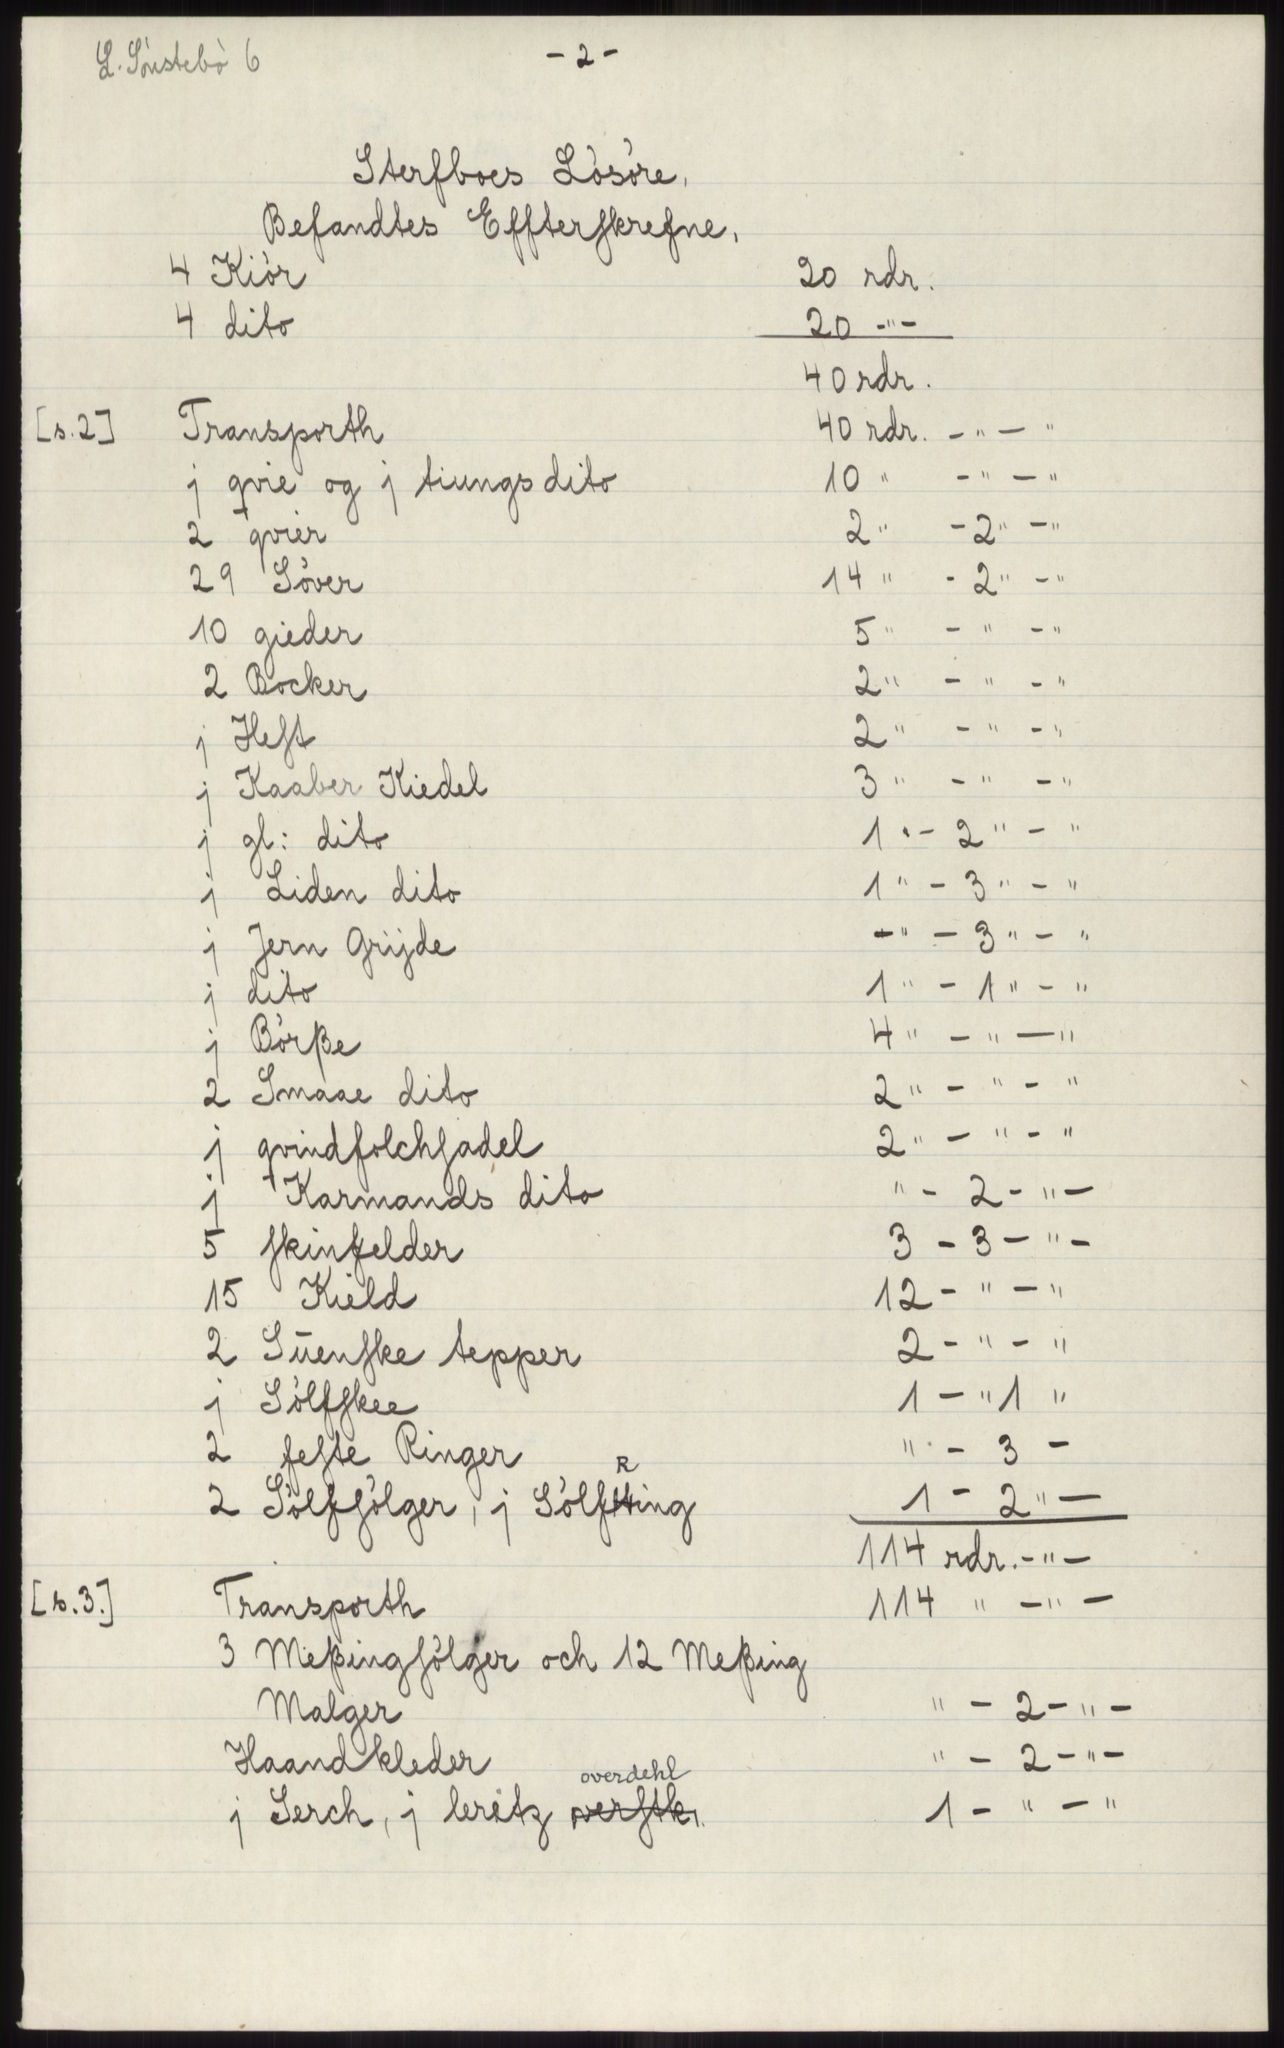 L. Sönstebö 6
- 2 -
Sterfboes Lösöre,
Befandtes Effterskrefne,
4 Kiör 20 rdr.
4 dito 20 -"-
40 rdr.
[s.2] Transporth 40 rdr. - " - "
j qvie og j tiungsdito 10 " - " - "
2 qvier 2 " - 2 " - "
29 Söver 14 " - 2 " - "
10 gieder 5 " - " - "
2 Bocker 2 " - " - "
j Hest 2 " - " - "
j Kaaber Kiedel 3 " - " - "
j gl: dito 1 " - 2 " - "
j Liden dito 1 " - 3 " - "
j Jern Grijde - " - 3 " - "
j dito 1 " - 1 " - "
j Börße 4 " - " - "
2 Smaae dito 2 " - " - "
j qvindfolchsadel 2 " - " - "
j Karmands dito " - 2 - " -
5 skinfelder 3 - 3 - " -
15 Kield 12 - " - "
2 Süenske tepper 2 - " - "
j Sölfskee 1 - " 1 "
2 feste Ringer " - 3 -
2 Sölfsölger, j SölfRing 1 - 2 " -
114 rdr. - " -
[s.3.] Transporth 114 " - " -
3 Meßingsölger och 12 Meßing
Malger " - 2 - " -
Haandkleder " - 2 - " -
overdehl
j Serch, j leritz overstk. 1 - " - "